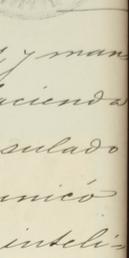 y man-
acienda
sulado
unicó
inteli-